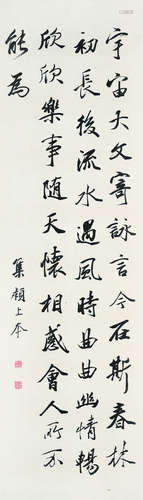 宇宙大文寄詠言今在斯春林
初長後流水遇風時曲曲幽情暢
欣欣樂事随天懷相感會人所不
能為
集潁上本